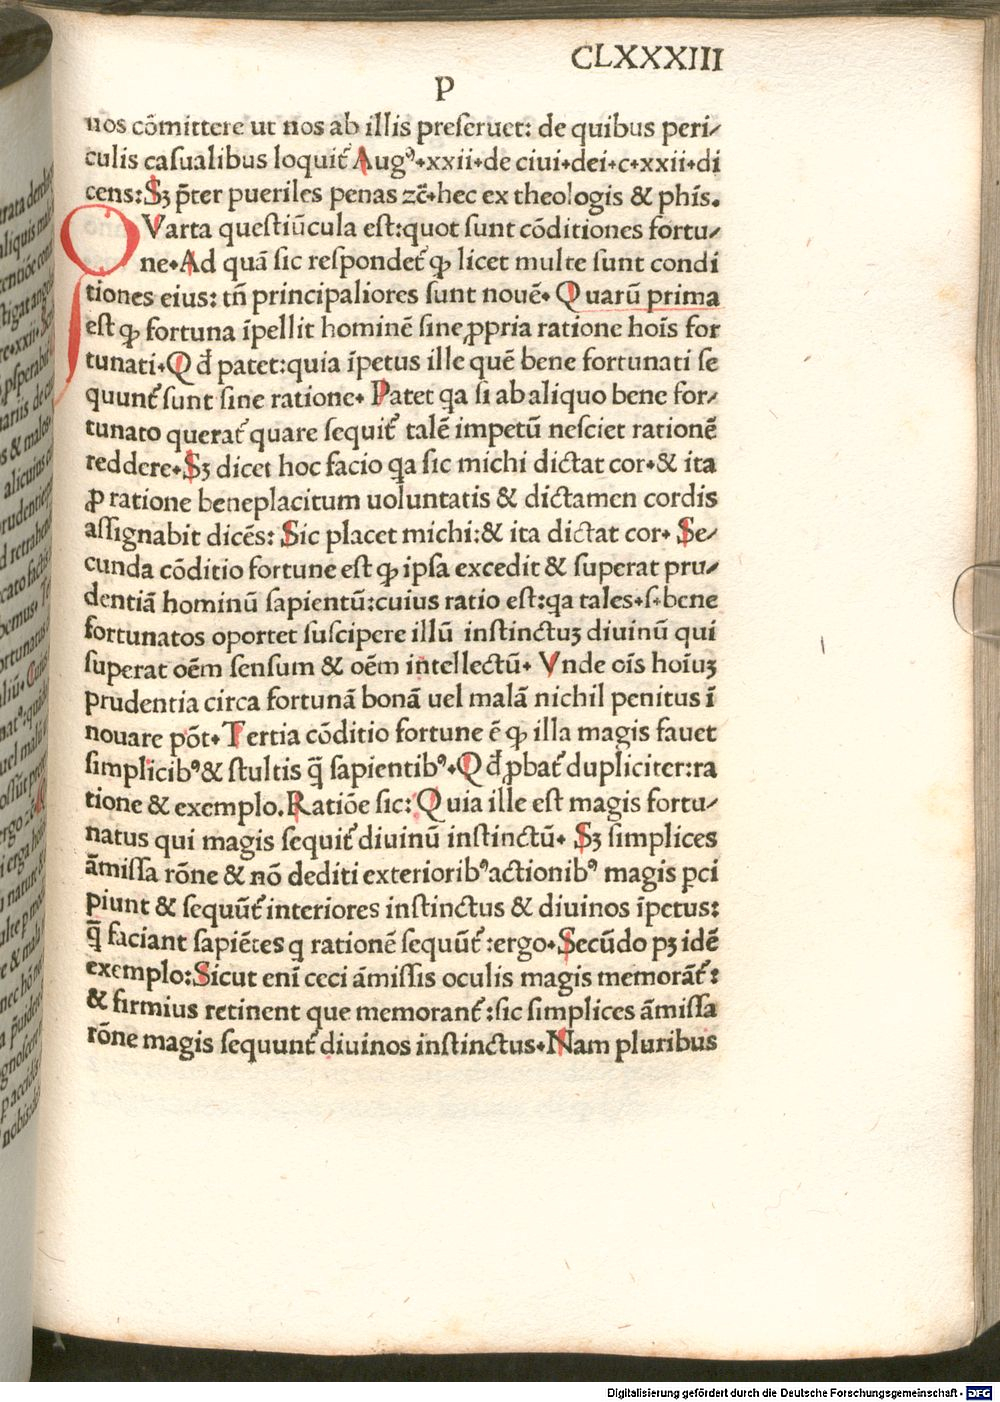 CLXXXIII
P
nos cōmittere ut nos ab illis preseruet: de quibus peri⸗
culis casualibus loquit᷑ Augꝰ.xxii.de ciui.dei.c.xxii.di
cens:Sꝫ p̄ter pueriles penas zc̄.hec ex theologis & phīs.
QVarta questiūcula est:quot sunt cōditiones fortu⸗
ne.Ad quā sic respondet᷑ ꝙ licet multe sunt condi
tiones eius: tn̄ principaliores sunt nouē. Quarū prima
est ꝙ fortuna īpellit hominē sine ꝓpria ratione hoīs for
tunati.Qd̄ patet:quia īpetus ille quē bene fortunati se
quunt᷑ sunt sine ratione. Patet qa si ab aliquo bene for⸗
tunato querat᷑ quare sequit᷑ talē impetū nesciet rationē
reddere.Sꝫ dicet hoc facio qa sic michi dictat cor.& ita
ꝓ ratione beneplacitum uoluntatis & dictamen cordis
assignabit dicēs: Sic placet michi:& ita dictat cor. Se⸗
cunda cōditio fortune est ꝙ ipsa excedit & superat pru⸗
dentiā hominū sapientū:cuius ratio est:qa tales.s.bene
fortunatos oportet suscipere illū instinctuꝫ diuinū qui
superat oēm sensum & oēm intellectū. Vnde oīs hoīuꝫ
prudentia circa fortunā bonā uel malā nichil penitus ī
nouare pōt.Tertia cōditio fortune ē ꝙ illa magis fauet
simplicibꝰ& stultis q̄ sapientibꝰ.Qd̄ ꝓbat᷑ dupliciter:ra
tione & exemplo.Ratiōe sic:Quia ille est magis fortu⸗
natus qui magis sequit᷑ diuinū instinctū. Sꝫ simplices
āmissa rōne & nō dediti exterioribꝰactionibꝰ magis ꝑci
piunt & sequūt᷑ interiores instinctus & diuinos īpetus:
q̄ faciant sapiētes q rationē sequūt᷑:ergo.Secūdo pꝫ idē
exemplo:Sicut enī ceci āmissis oculis magis memorāt᷑:
& firmius retinent que memorant᷑:sic simplices āmissa
rōne magis sequunt᷑ diuinos instinctus.Nam pluribus
Digitalisierung gefördert durch die Deutsche Forschungsgemeinschaft - DFG